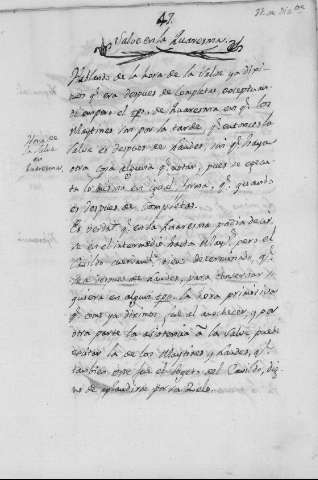 47.
Salve en la Quaresma.
Hablando de la hora de la Salve ya diximos
q.e era despues de completas, exceptuando
siempre el tpo. de Quaresma en q.e los
Maytines son por la tarde, q.e entonces la
Salve es despues de Laudes, sin q.e haya
otra cosa alguna q.e notar, pues se executa
lo mismo en igual forma, q.e quando
es despues de completas.
Hora de
la Salve
en
Quaresma.
Es verdad q.e en la Quaresma podia decirse
en el intermedio hasta Mayt.s pero el
Cavildo tiene determinado, q.e
sea despues de Laudes, para conservar si
quiera en algun tpo. la hora primitiva
q.e como ya diximos, fue al anochecer, y por
otra parte la asistencia à la Salve puede
evitar la de los Maytines y Laudes, q.e
tambien este fue el objeto del Cavildo, digno
de aplaudirse por su Zelo.